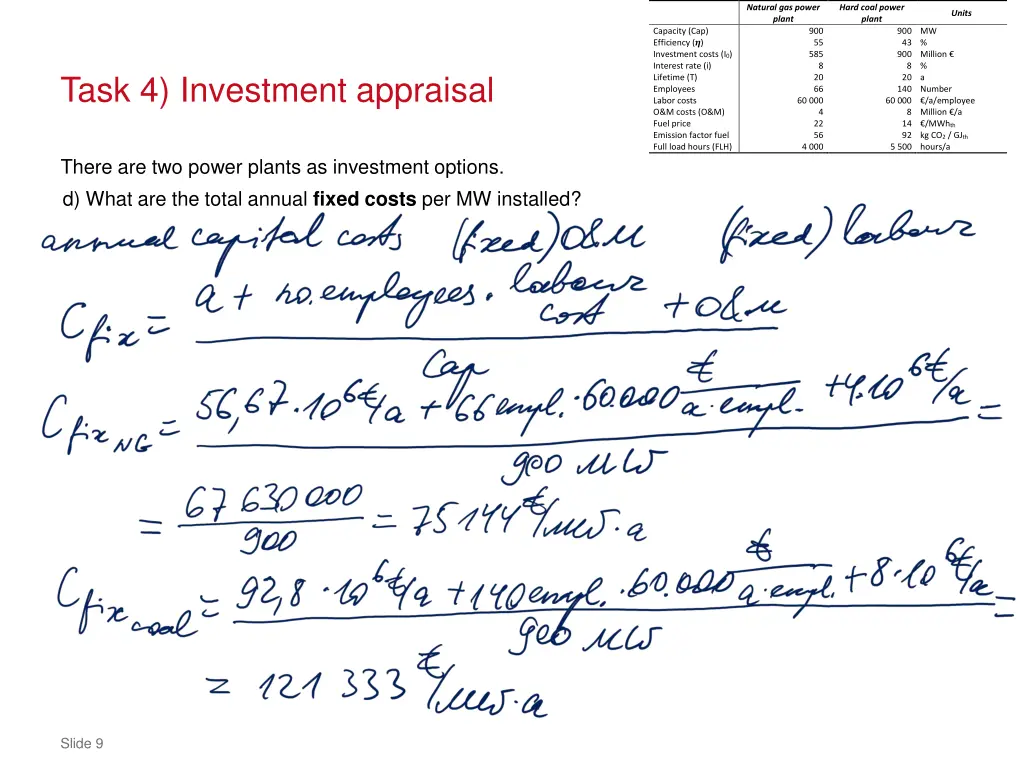 Natural gas power plant Hard coal power plant Units
Capacity (Cap) 900 900 MW
Efficiency (η) 55 43 %
Investment costs (I₀) 585 900 Million €
Interest rate (i) 8 8 %
Lifetime (T) 20 20 a
Employees 66 140 Number
Labor costs 60 000 60 000 €/a/employee
O&M costs (O&M) 4 8 Million €/a
Fuel price 22 14 €/MWhth
Emission factor fuel 56 92 kg CO₂ / GJth
Full load hours (FLH) 4 000 5 500 hours/a
Task 4) Investment appraisal
There are two power plants as investment options.
d) What are the total annual fixed costs per MW installed?
annual capital costs (fixed) O&M (fixed) labour
C fix = a + no. employees · labour cost + O&M
Cap
C fix NG = 56,67 · 10⁶ €/a + 66 empl. · 60.000 € / a · empl. + 4 · 10⁶ €/a =
900 MW
= 67 630 000 / 900 = 75 144 €/MW · a
C fix coal = 92,8 · 10⁶ €/a + 140 empl. · 60.000 € / a · empl. + 8 · 10⁶ €/a =
900 MW
= 121 333 €/MW · a
Slide 9